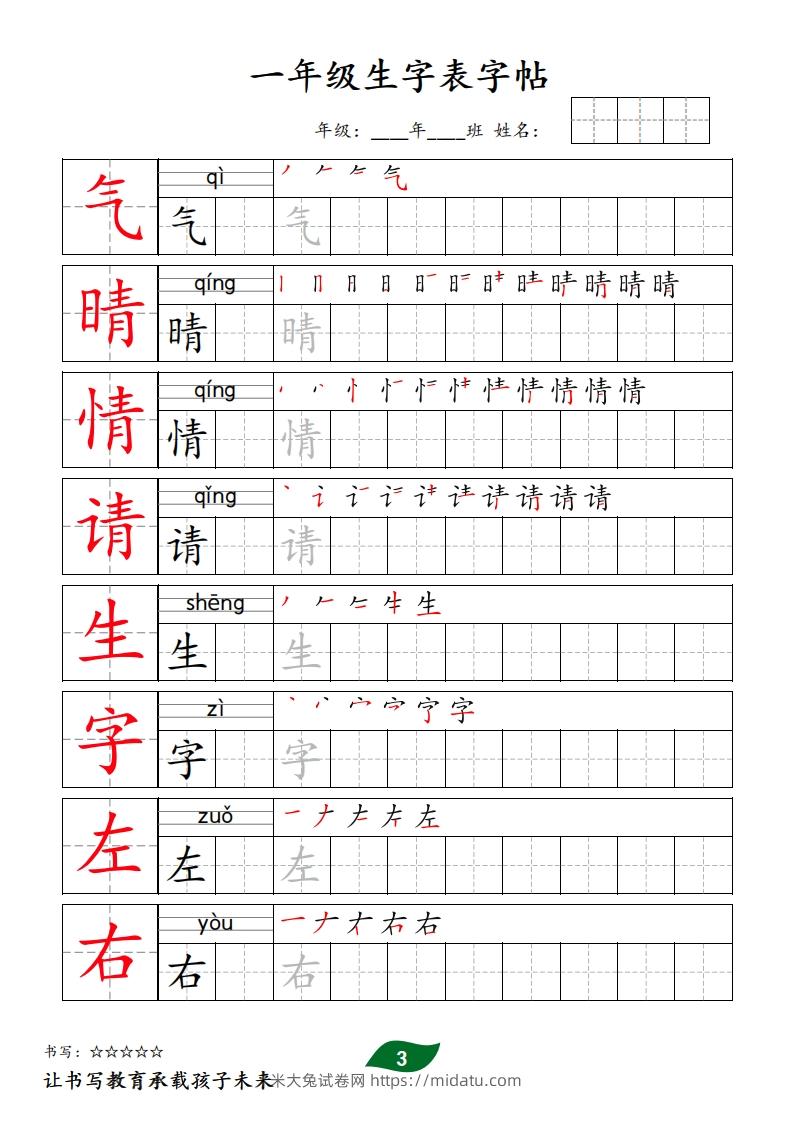 一年级生字表字帖
年级：____年____班 姓名：
气 qì
气 气
晴 qíng
晴 晴
情 qíng
情 情
请 qǐng
请 请
生 shēng
生 生
字 zì
字 字
左 zuǒ
左 左
右 yòu
右 右
书写：☆☆☆☆☆
3
让书写教育承载孩子未来
米大兔试卷网 https://midatu.com